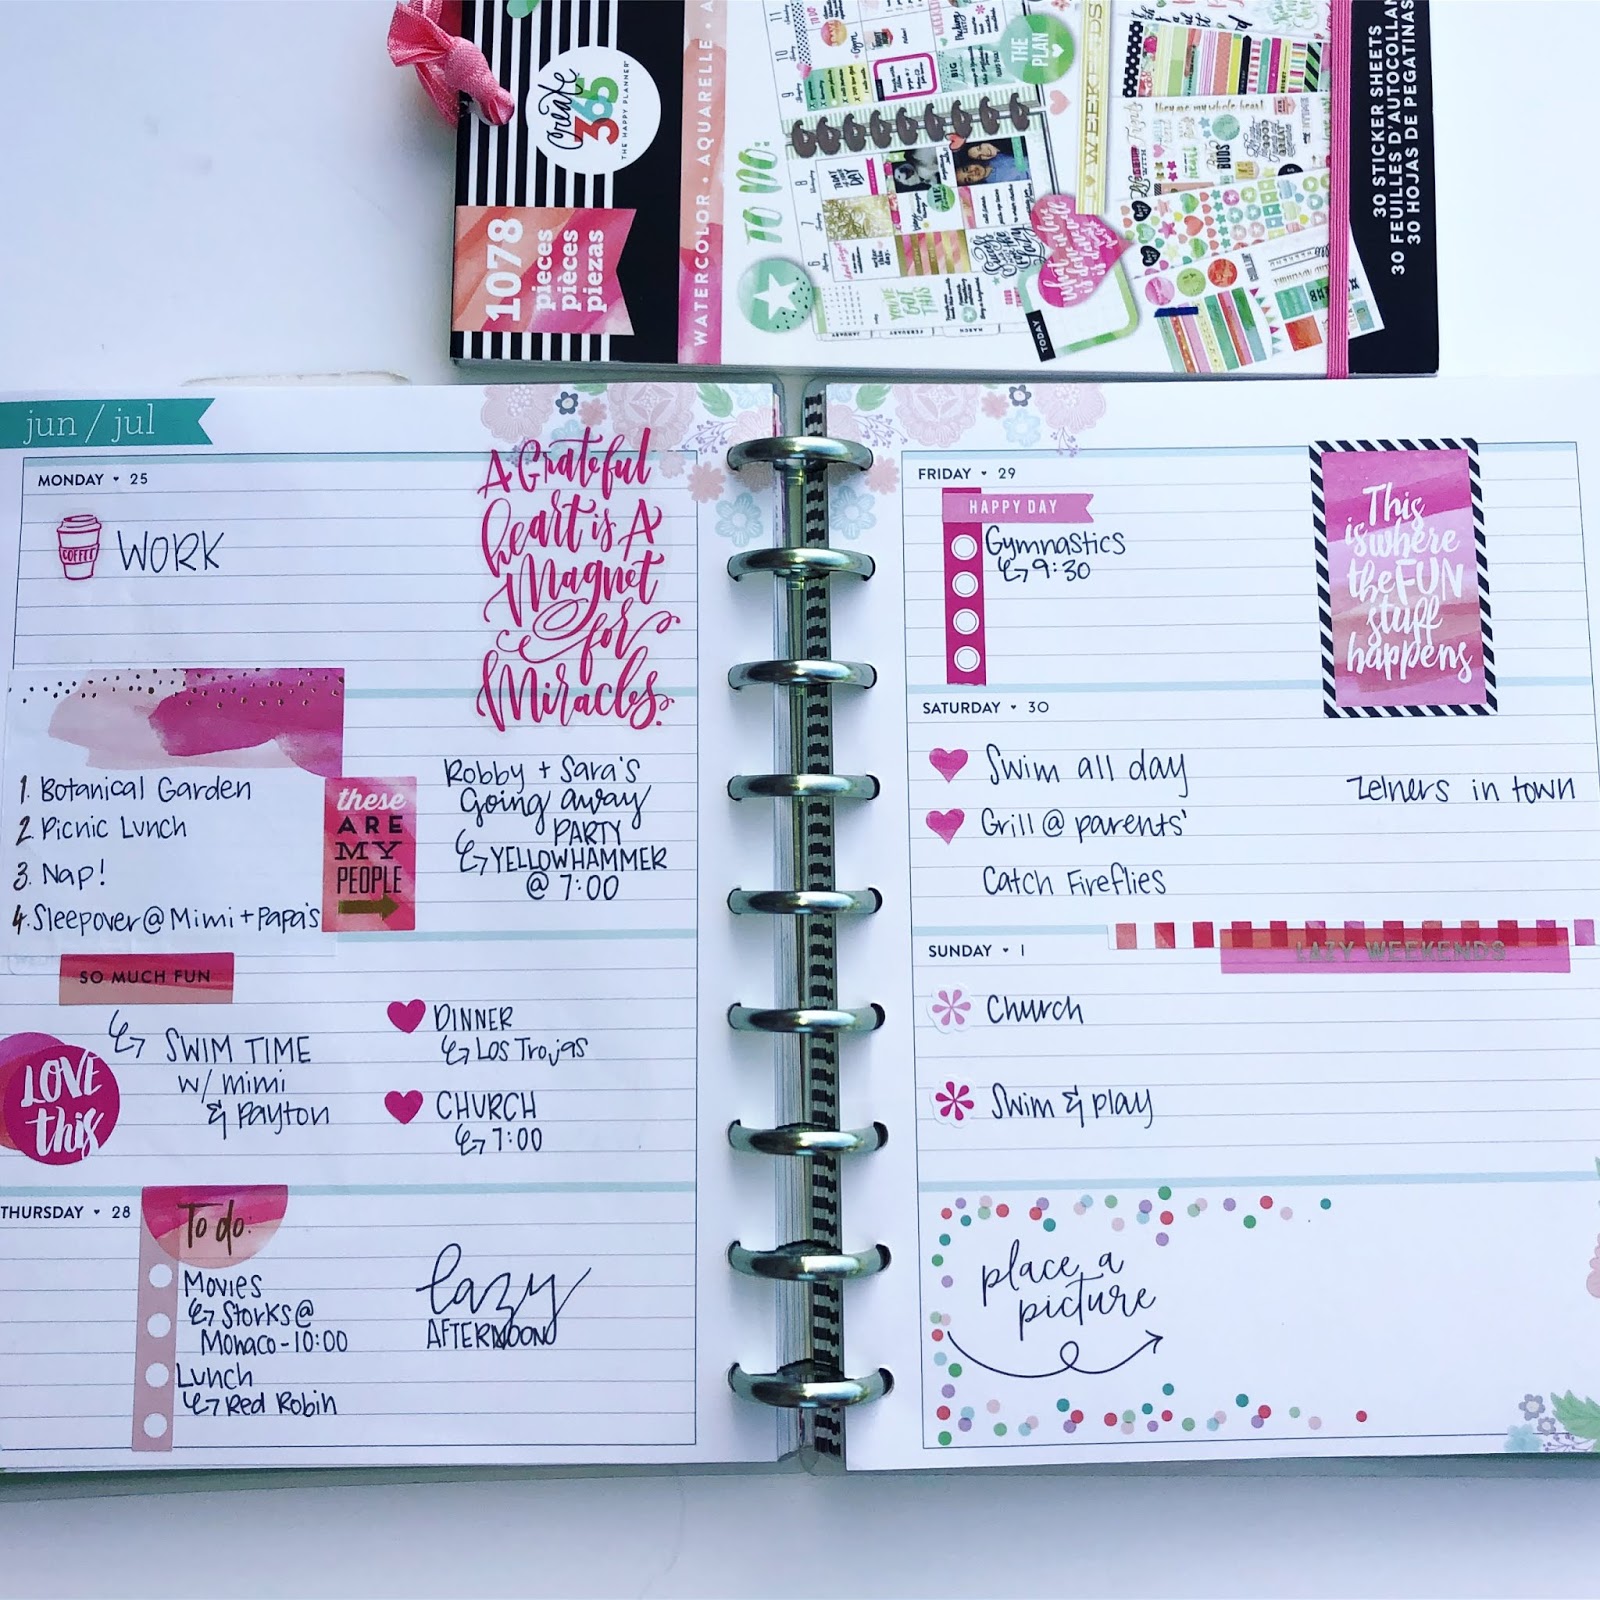 Create
365
THE HAPPY PLANNER
1078
pieces
pièces
piezas
WATERCOLOR • AQUARELLE • A
TO DO:
THE PLAN
WEEKENDS
TODAY
30 STICKER SHEETS
30 FEUILLES D'AUTOCOLLAN
30 HOJAS DE PEGATINAS
jun / jul
MONDAY ♥ 25
COFFEE
WORK
A Grateful
heart is A
Magnet
for
Miracles.
1. Botanical Garden
2. Picnic Lunch
3. Nap!
4. Sleepover @ Mimi + Papa's
these
ARE
MY
PEOPLE
Robby + Sara's
Going away
PARTY
↳ YELLOWHAMMER
@ 7:00
SO MUCH FUN
LOVE
this
↳ SWIM TIME
w/ mimi
& Payton
DINNER
↳ Los Trojas
CHURCH
↳ 7:00
THURSDAY ♥ 28
To do:
Movies
↳ Storks @
Monaco - 10:00
Lunch
↳ Red Robin
lazy
AFTERNOON
FRIDAY ♥ 29
HAPPY DAY
Gymnastics
↳ 9:30
This
is where
the FUN
stuff
happens
SATURDAY ♥ 30
Swim all day
Grill @ parents'
Catch Fireflies
Zelners in town
SUNDAY ♥ 1
LAZY WEEKENDS
Church
Swim & play
place a
picture